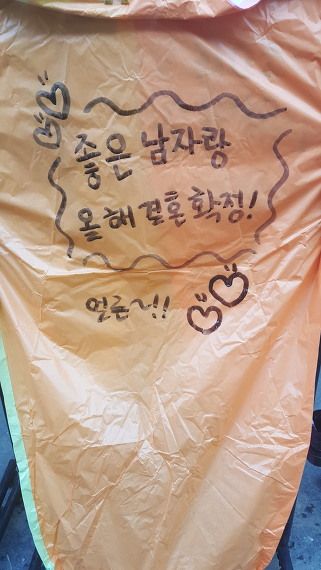 좋은 남자랑
올해 결혼 확정!
얼른~!!